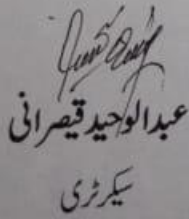 عبدالوحید قیصرانی
سیکرٹری